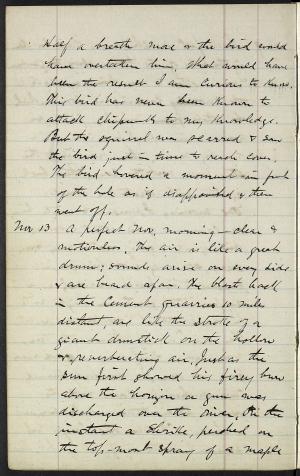 Half a breath more & the bird would
have overtaken him. What would have
been the result I am curious to know.
This bird has never been known to
attack chipmunks to my knowledge.
But the squirrel was scarred & saw
the bird just in time to reach cover.
The bird hovered a moment in front
of the hole as if disappointed & then
went off.
Nov 13 A perfect Nov. morning – clear &
motionless. The air is like a great
drum; sounds arise on every side
& are heard afar. The blasts back
in the cement quarries 10 miles
distant, are like the stroke of a
giant drumstick on the hollow
& reverberating air. Just as the
sun first showed his firey brow
above the horizon a gun was
discharged over the river. On the
instant a shrike, perched on
the top-most spray of a maple